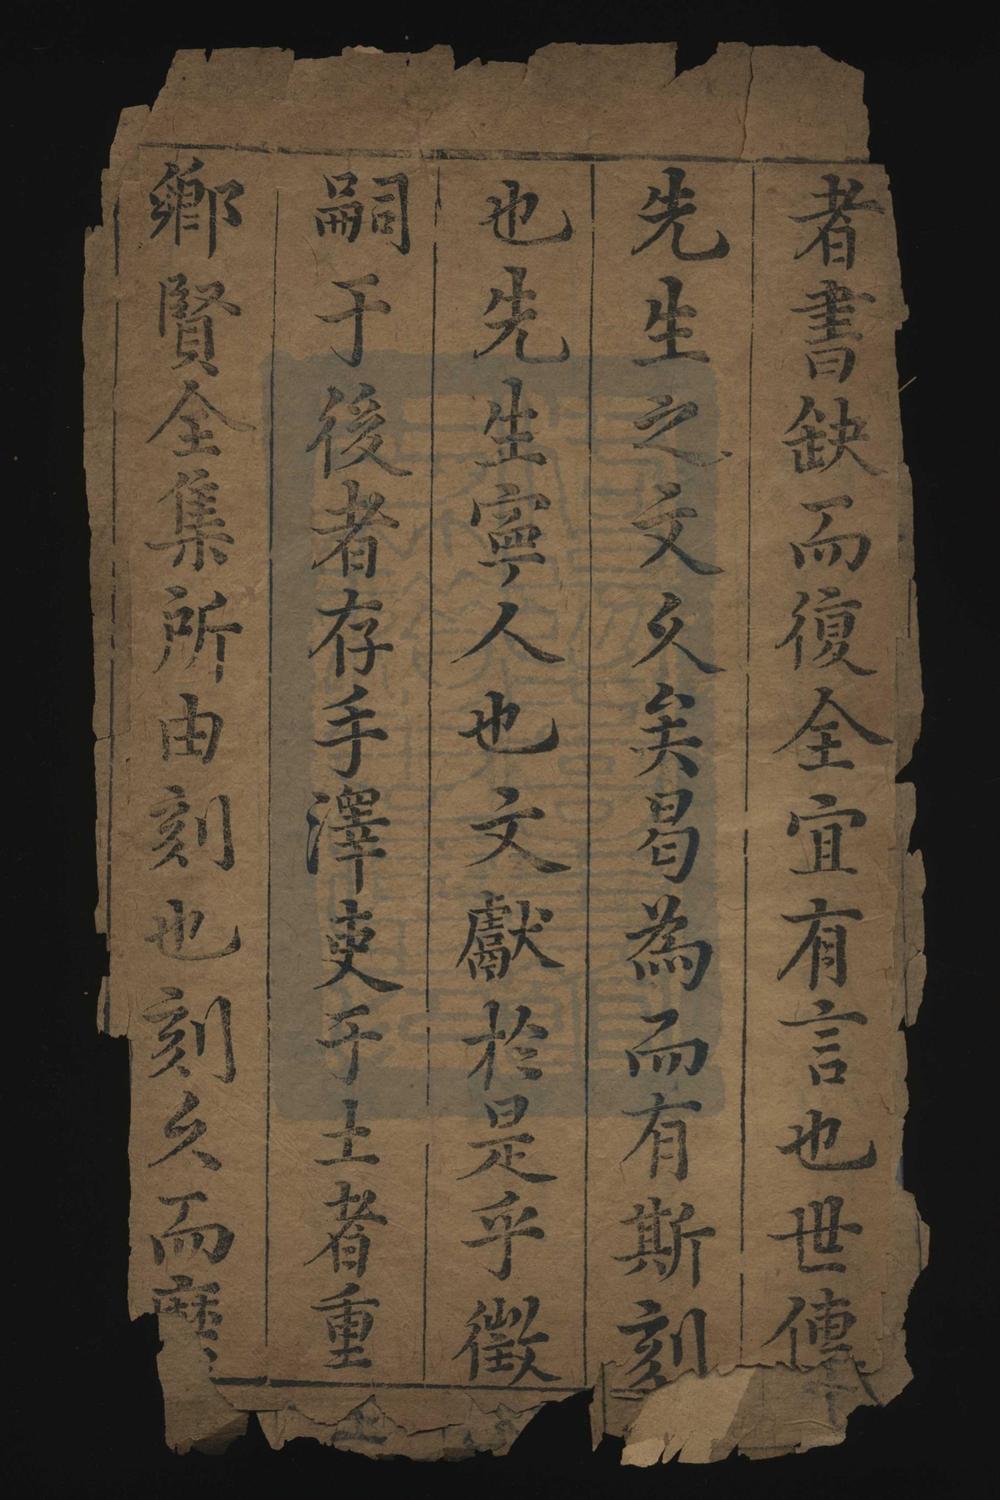 者書缺而復全宜有言也世傳
先生之文久矣曷為而有斯刻
也先生寧人也文獻於是乎徵
嗣于後者存手澤吏于土者重
鄉賢全集所由刻也刻久而